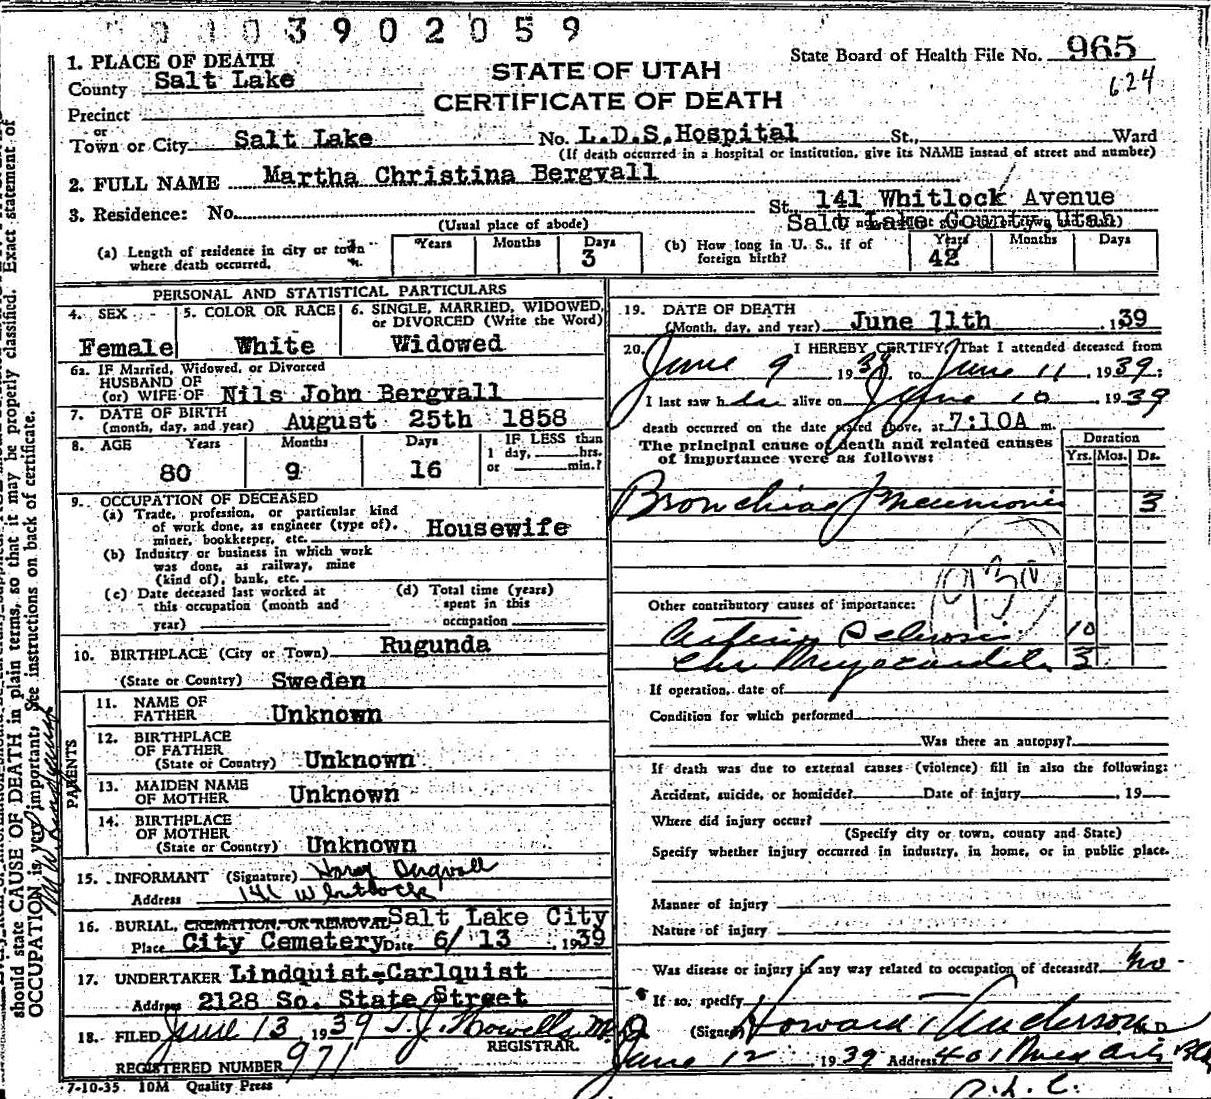 0 1 0 3 9 0 2 0 5 9
State Board of Health File No. 965
624
STATE OF UTAH
CERTIFICATE OF DEATH
1. PLACE OF DEATH
County Salt Lake
Precinct
or
Town or City Salt Lake No. L.D.S. Hospital St., Ward
(If death occurred in a hospital or institution, give its NAME instead of street and number)
2. FULL NAME Martha Christina Bergvall
3. Residence: No. St. 141 Whitlock Avenue
(Usual place of abode) Salt Lake County, Utah
(a) Length of residence in city or town where death occurred. Years Months Days 3
(b) How long in U. S., if of foreign birth? Years 42 Months Days
PERSONAL AND STATISTICAL PARTICULARS
4. SEX Female
5. COLOR OR RACE White
6. SINGLE, MARRIED, WIDOWED, or DIVORCED (Write the Word) Widowed
6a. IF Married, Widowed, or Divorced
HUSBAND OF
(or) WIFE OF Nils John Bergvall
7. DATE OF BIRTH
(month, day, and year) August 25th 1858
8. AGE Years 80 Months 9 Days 16
IF LESS than
1 day, hrs.
or min.?
9. OCCUPATION OF DECEASED
(a) Trade, profession, or particular kind
of work done, as engineer (type of),
miner, bookkeeper, etc. Housewife
(b) Industry or business in which work
was done, as railway, mine
(kind of), bank, etc.
(c) Date deceased last worked at
this occupation (month and
year)
(d) Total time (years)
spent in this
occupation
10. BIRTHPLACE (City or Town) Rugunda
(State or Country) Sweden
PARENTS
11. NAME OF
FATHER Unknown
12. BIRTHPLACE
OF FATHER
(State or Country) Unknown
13. MAIDEN NAME
OF MOTHER Unknown
14. BIRTHPLACE
OF MOTHER
(State or Country) Unknown
15. INFORMANT (Signature) Bergvall
Address 141 Whitlock
16. BURIAL, CREMATION, OR REMOVAL Salt Lake City
Place City Cemetery Date 6/ 13, 1939
17. UNDERTAKER Lindquist-Carlquist
Address 2128 So. State Street
18. FILED June 13 1939 T. J. Howells M.D.
REGISTRAR
REGISTERED NUMBER 971
7-10-35 10M Quality Press
19. DATE OF DEATH
(Month, day, and year) June 11th, 1939
20. I HEREBY CERTIFY, That I attended deceased from
June 9 1939 to June 11, 1939:
I last saw her alive on June 10 1939
death occurred on the date stated above, at 7:10A m.
The principal cause of death and related causes
of importance were as follows:
Duration
Yrs. Mos. Ds.
Bronchial Pneumonia 3
930
Other contributory causes of importance:
Arterio Sclerosis 10
Chr Myocarditis 3
If operation, date of
Condition for which performed
Was there an autopsy?
If death was due to external causes (violence) fill in also the following:
Accident, suicide, or homicide? Date of injury, 19
Where did injury occur?
(Specify city or town, county and State)
Specify whether injury occurred in industry, in home, or in public place.
Manner of injury
Nature of injury
Was disease or injury in any way related to occupation of deceased? No
If so, specify
(Signed) Howard T Anderson M.D.
June 12, 1939 Address 401 Med Arts Bldg
S.L.C.
should state CAUSE OF DEATH in plain terms, so that it may be properly classified. Exact statement of
OCCUPATION is very important. See instructions on back of certificate.